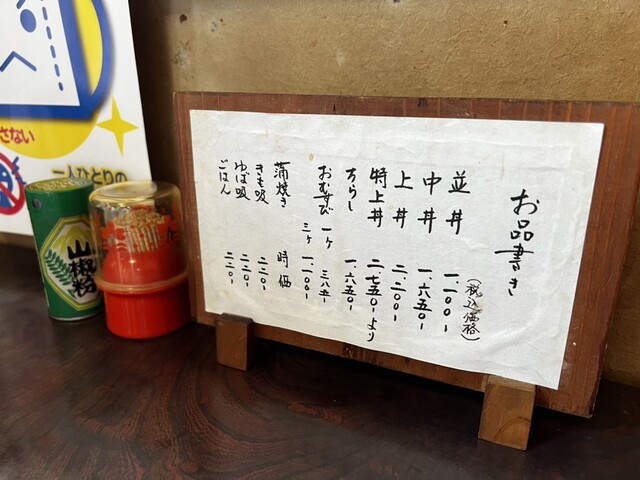 お品書き
(税込価格)
並丼 一、一〇〇-
中丼 一、六五〇-
上丼 二、二〇〇-
特上丼 二、七五〇-より
ちらし 一、六五〇-
おむすび 一ケ 三八五-
三ケ 一、一〇〇-
蒲焼き 時価
きも吸 二二〇-
ゆば吸 二二〇-
ごはん 二二〇-
山椒粉
さない
一人ひとりの
へ